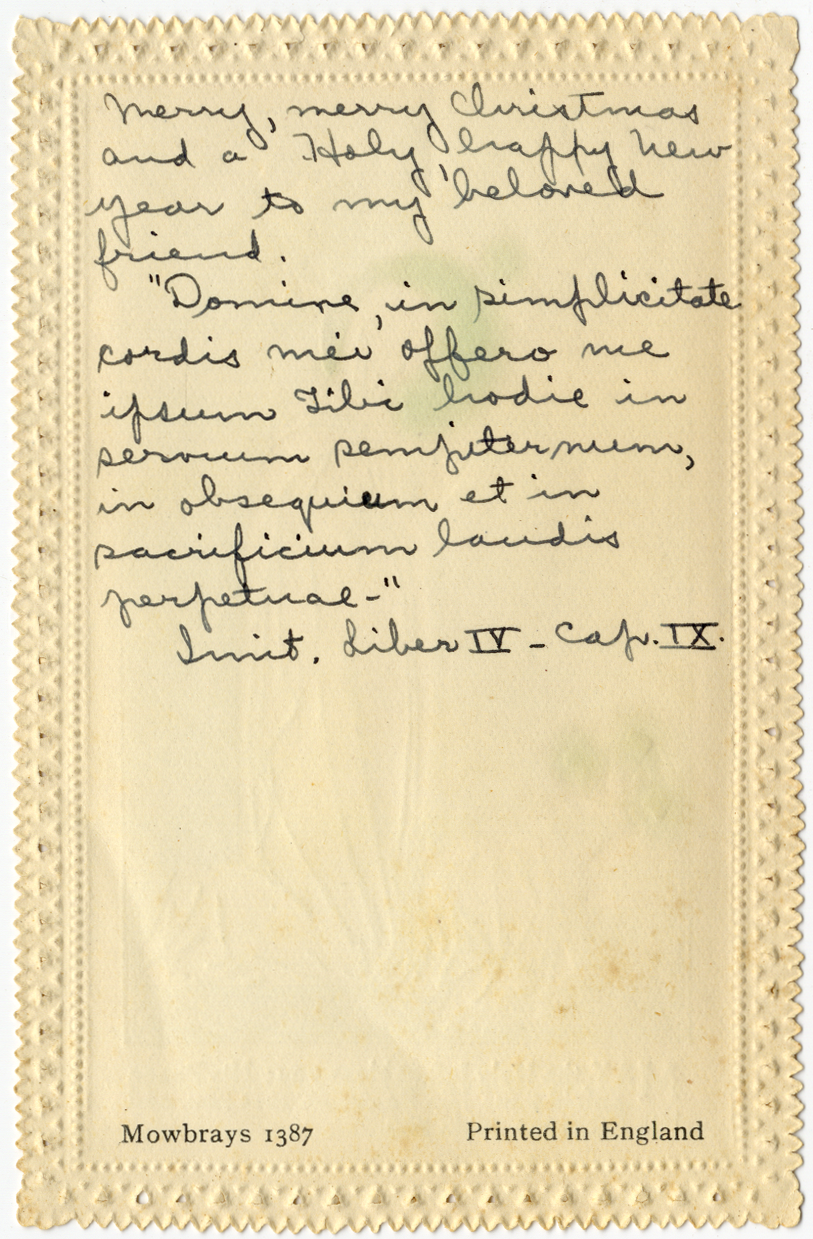 Merry, merry Christmas
and a Holy, happy New
year to my beloved
friend.
"Domine, in simplicitate
cordis mei offero me
ipsum Tibi hodie in
servum sempiternum,
in obsequium et in
sacrificium laudis
perpetuae-"
Imit. Liber IV - Cap. IX.
Mowbrays 1387 Printed in England